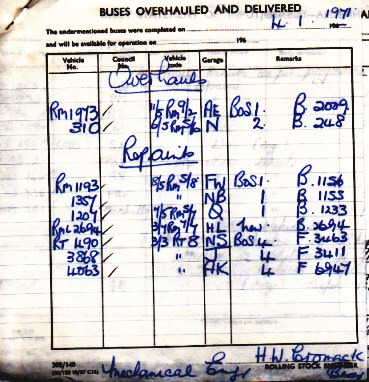 BUSES OVERHAULED AND DELIVERED
4. 1. 1971
The undermentioned buses were completed on
and will be available for operation on 196
Vehicle No. Council No. Vehicle code Garage Remarks
Overhauls
RM1973 / 11/5 RM 9/2 AE BOS 1. B. 2009
310 / 6/5 RM 5/6 N 2. B. 248
Repaints
RM1193 / 8/5 RM 5/8 FW BOS 1. B. 1156
1357 / " NB 1 B. 1155
1207 / 7/5 RM 5/7 Q 1 B. 1233
RML2694 / 3/7 RM 7/7 HL New B. 2694
RT 490 / 3/3 RT 8 NS BOS 4 F 3463
3868 / " J 4 F 3411
4063 / " AK 4 F 6947
Mechanical Eng
H.W.
ROLLING STOCK ENGINEER